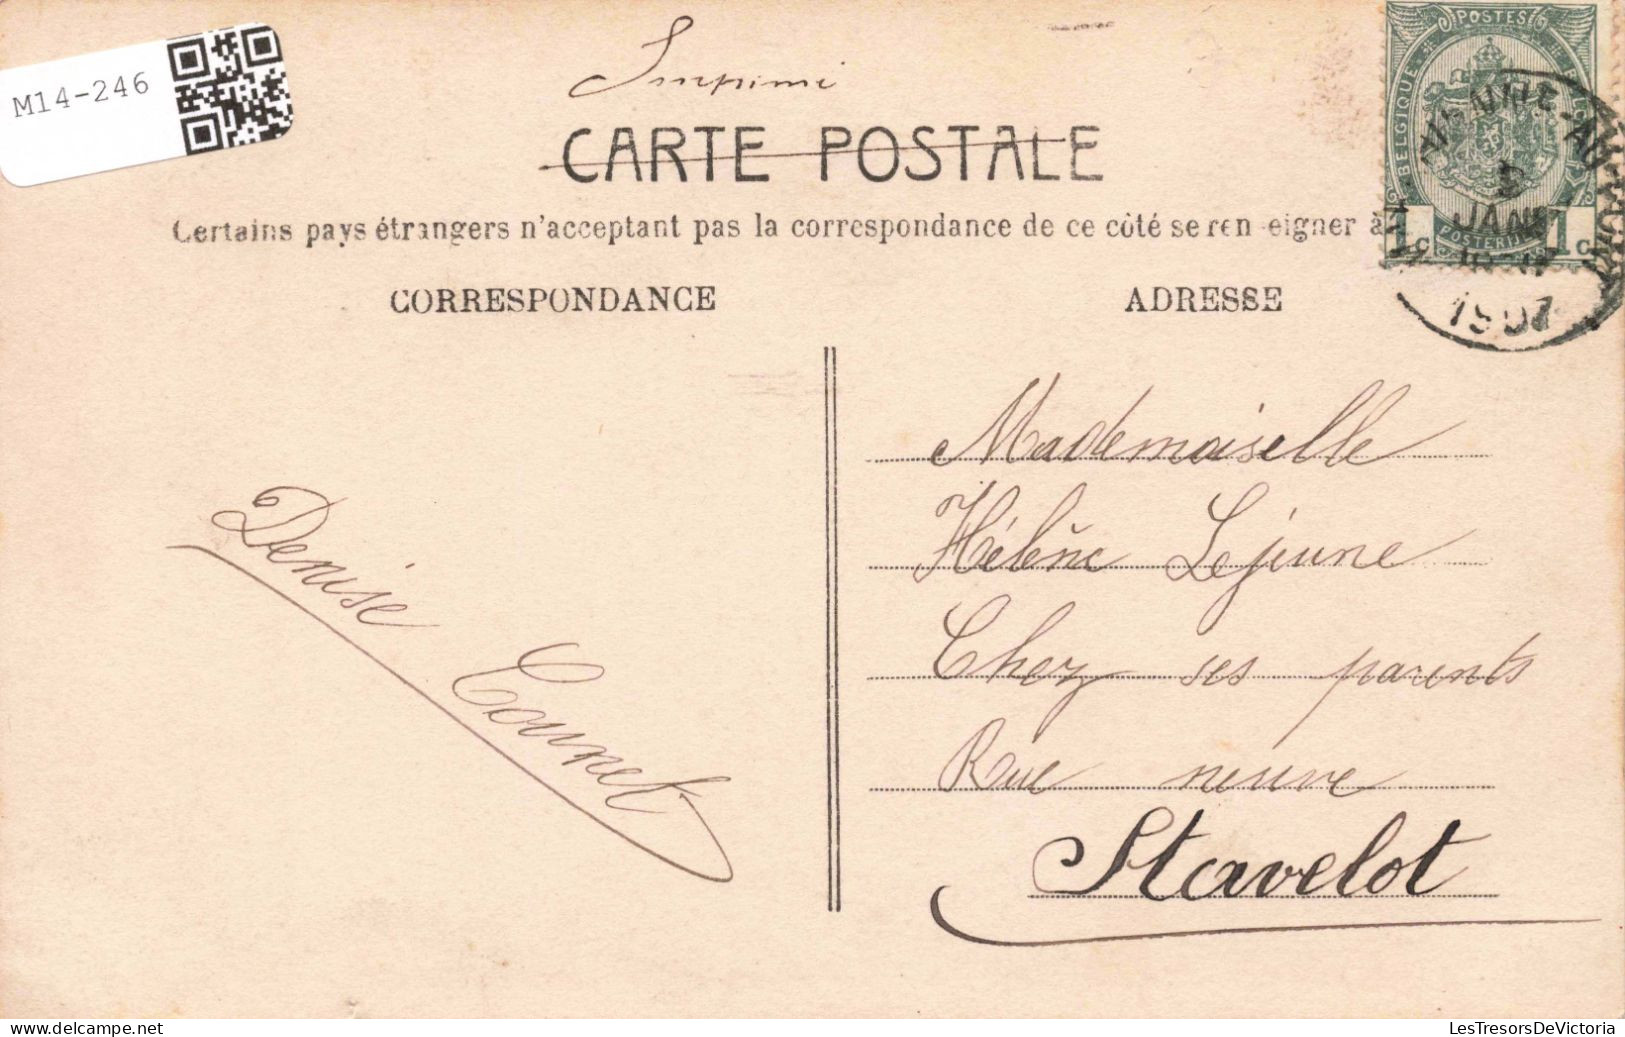 M14-246
Imprimé
CARTE POSTALE
Certains pays étrangers n'acceptant pas la correspondance de ce côté se ren eigner à
CORRESPONDANCE
ADRESSE
POSTES
BELGIQUE
POSTERIJEN
1c 1c
JANV
1907
Denise Cournet
Mademoiselle
Hélène Lejeune
Chez ses parents
Rue neuve
Stavelot
LesTresorsDeVictoria
delcampe.net